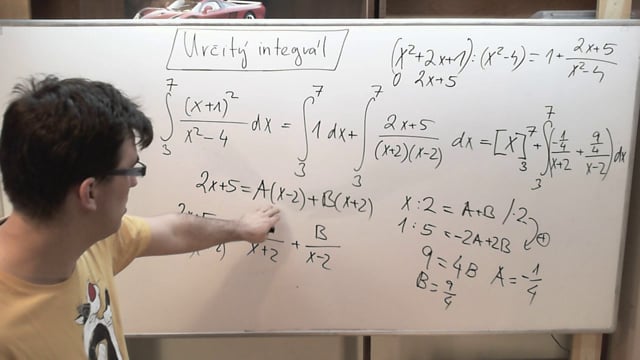 Určitý integrál
(x²+2x+1):(x²-4) = 1 + \frac{2x+5}{x²-4}
0 2x+5
∫_3^7 \frac{(x+1)²}{x²-4} dx = ∫_3^7 1 dx + ∫_3^7 \frac{2x+5}{(x+2)(x-2)} dx = [x]_3^7 + ∫_3^7 (\frac{-\frac{1}{4}}{x+2} + \frac{\frac{9}{4}}{x-2}) dx
2x+5 = A(x-2) + B(x+2)
x+2 + \frac{B}{x-2}
x : 2 = A+B /·2
1 : 5 = -2A+2B ⊕
9 = 4B A = \frac{-1}{4}
B = \frac{9}{4}